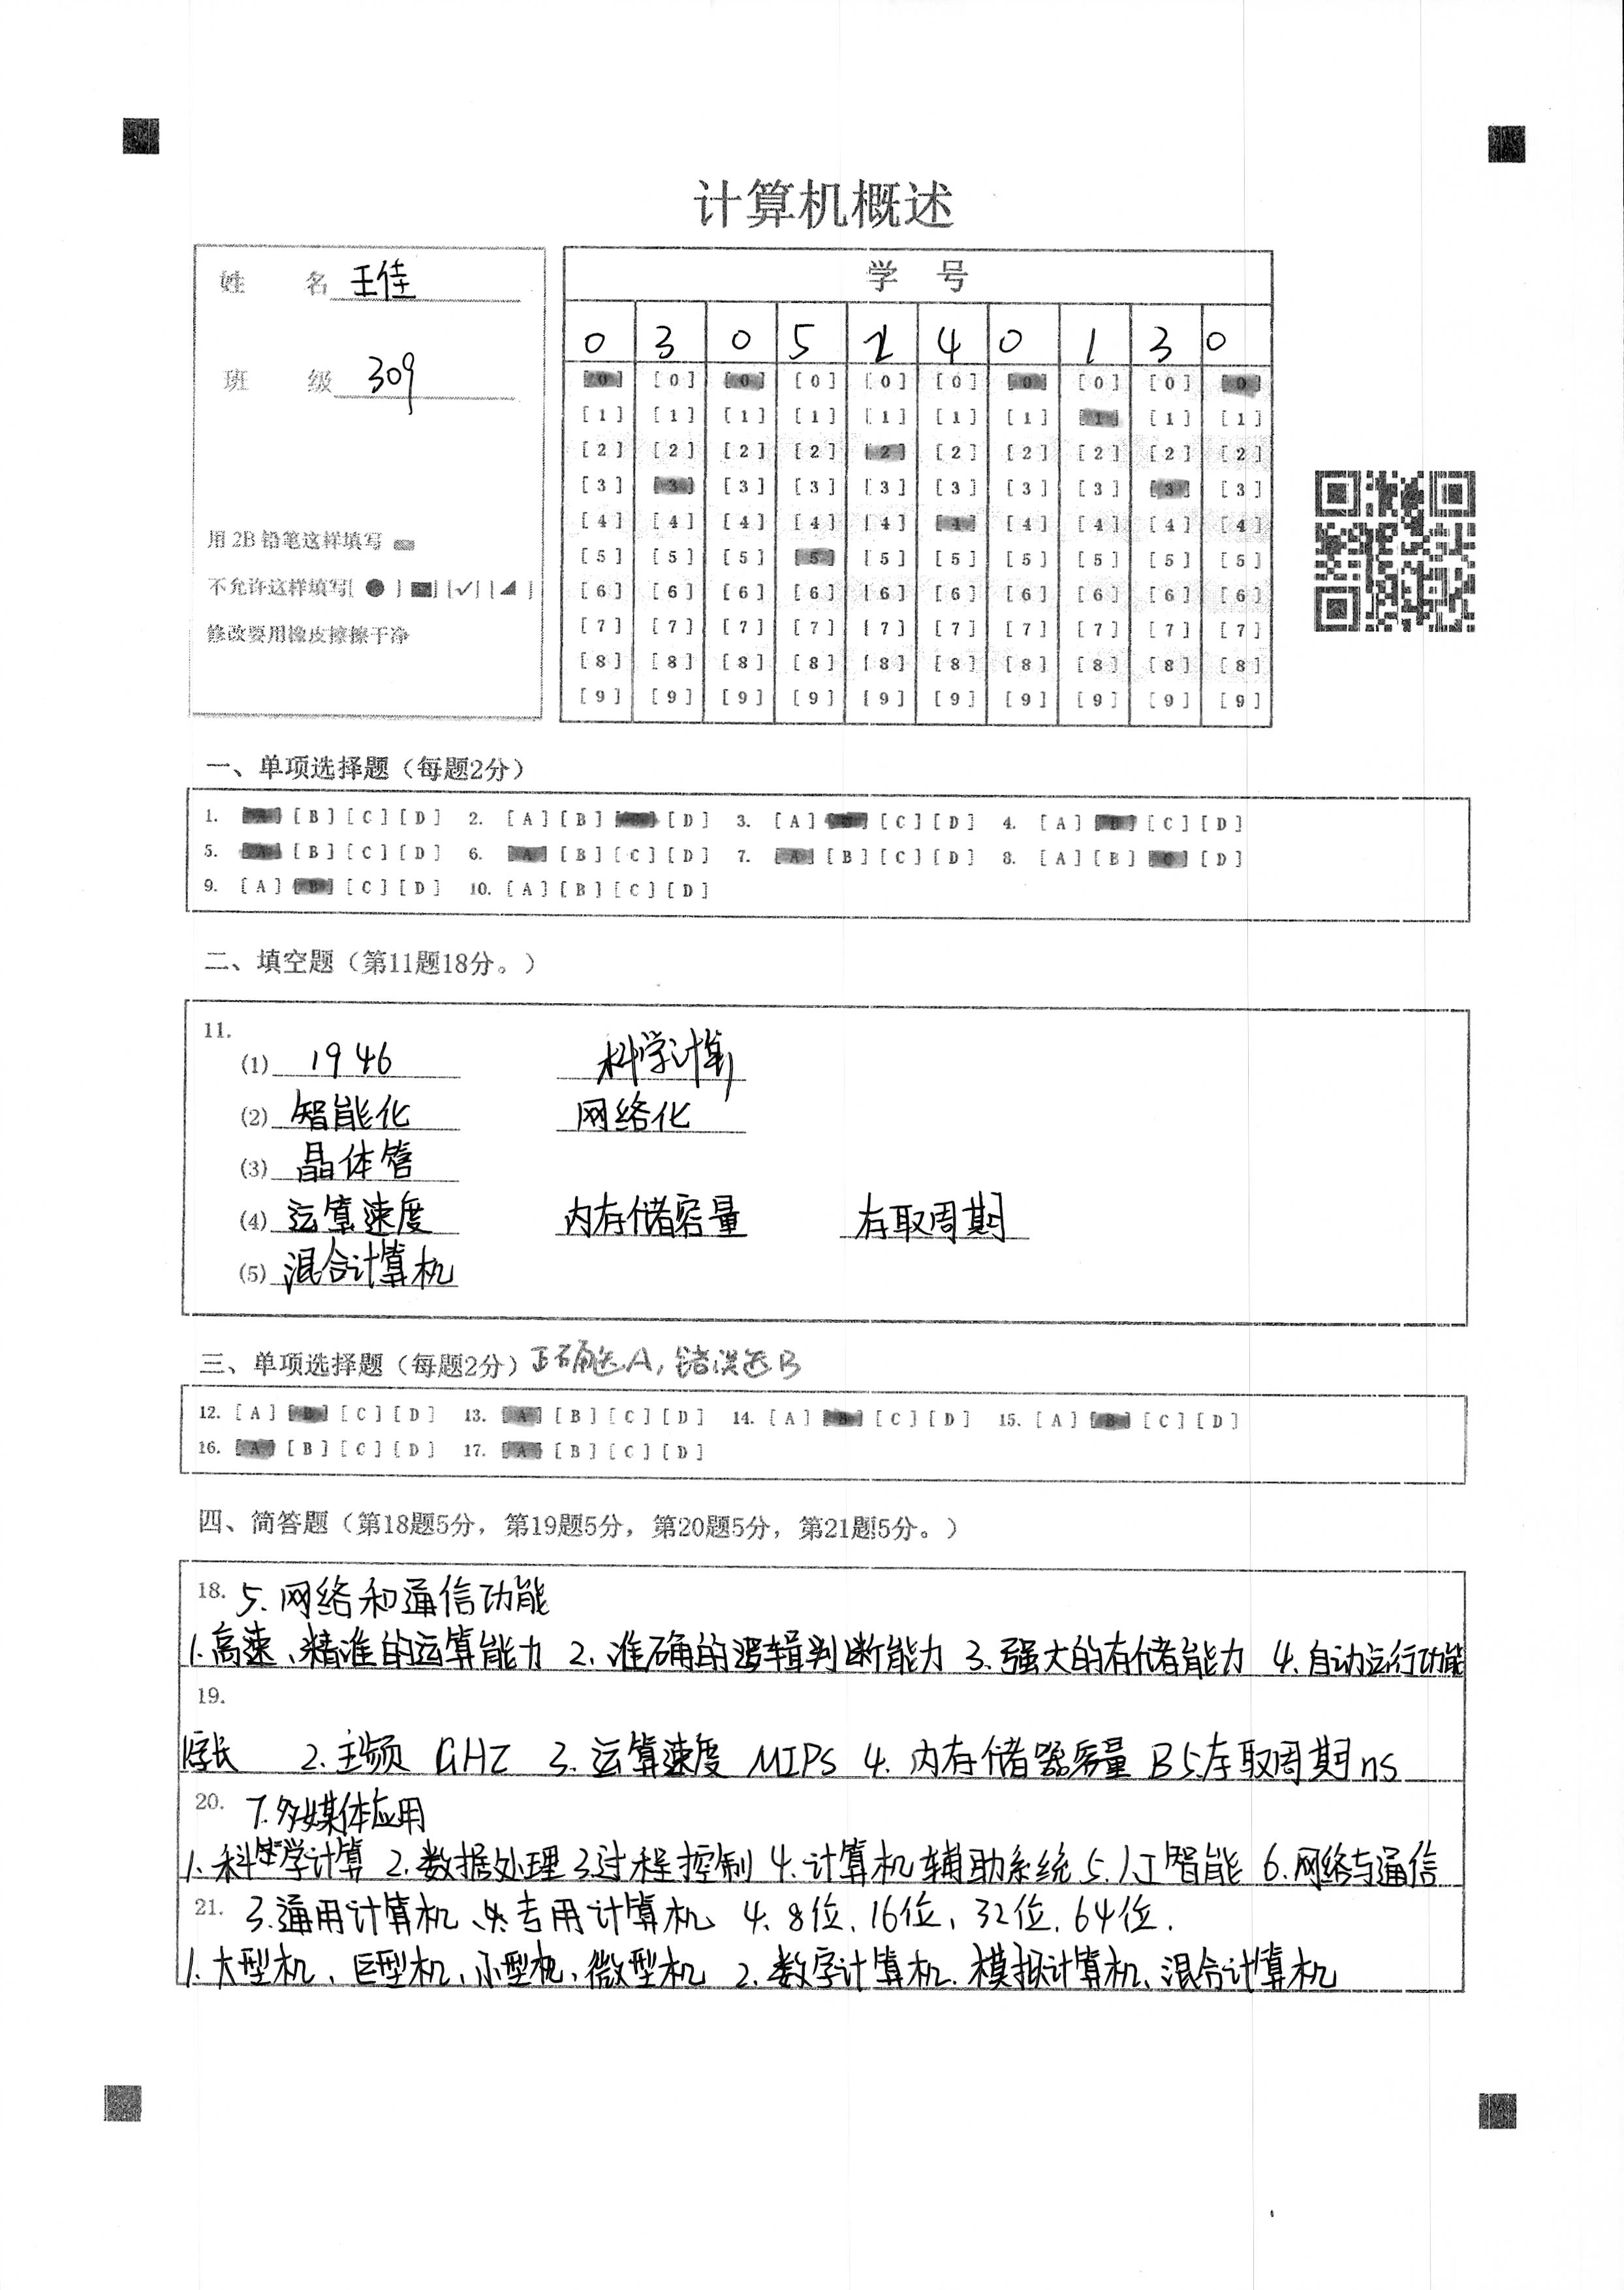 计算机概述
姓 名 王佳
班 级 309
用 2B 铅笔这样填写
不允许这样填写[ ● ] [■] [✓] [◢]
修改要用橡皮擦擦干净
学 号
0 3 0 5 2 4 0 1 3 0
[0] [0] [0] [0] [0] [0] [0] [0] [0] [0]
[1] [1] [1] [1] [1] [1] [1] [1] [1] [1]
[2] [2] [2] [2] [2] [2] [2] [2] [2] [2]
[3] [3] [3] [3] [3] [3] [3] [3] [3] [3]
[4] [4] [4] [4] [4] [4] [4] [4] [4] [4]
[5] [5] [5] [5] [5] [5] [5] [5] [5] [5]
[6] [6] [6] [6] [6] [6] [6] [6] [6] [6]
[7] [7] [7] [7] [7] [7] [7] [7] [7] [7]
[8] [8] [8] [8] [8] [8] [8] [8] [8] [8]
[9] [9] [9] [9] [9] [9] [9] [9] [9] [9]
一、单项选择题（每题2分）
1. [A] [B] [C] [D] 2. [A] [B] [C] [D] 3. [A] [B] [C] [D] 4. [A] [B] [C] [D]
5. [A] [B] [C] [D] 6. [A] [B] [C] [D] 7. [A] [B] [C] [D] 8. [A] [B] [C] [D]
9. [A] [B] [C] [D] 10. [A] [B] [C] [D]
二、填空题（第11题18分。）
11.
(1) 1946 科学计算
(2) 智能化 网络化
(3) 晶体管
(4) 运算速度 内存储容量 存取周期
(5) 混合计算机
三、单项选择题（每题2分）正确选A，错误选B
12. [A] [B] [C] [D] 13. [A] [B] [C] [D] 14. [A] [B] [C] [D] 15. [A] [B] [C] [D]
16. [A] [B] [C] [D] 17. [A] [B] [C] [D]
四、简答题（第18题5分，第19题5分，第20题5分，第21题5分。）
18. 5. 网络和通信功能
1.高速、精准的运算能力 2. 准确的逻辑判断能力 3.强大的存储能力 4.自动运行功能
19.
1字长 2.主频 GHZ 3.运算速度 MIPS 4. 内存储器容量 B 5.存取周期 ns
20. 7.多媒体应用
1. 科学计算 2.数据处理 3.过程控制 4.计算机辅助系统 5.人工智能 6.网络与通信
21. 3.通用计算机、专用计算机 4. 8位、16位、32位、64位.
1.大型机、巨型机、小型机、微型机 2.数字计算机、模拟计算机、混合计算机